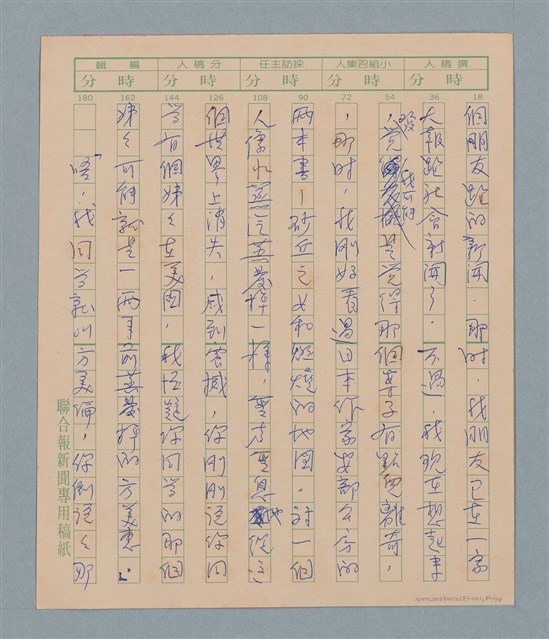 撰稿人 小組召集人 採訪主任 分稿人 編輯
時 分 時 分 時 分 時 分 時 分
18 36 54 72 90 108 126 144 162 180
個朋友跑的新聞。那時,我朋友已在一家
大報跑社會新聞了。不過,我現在想起來
,我可能是覺得那個案子有點兒離奇,
,那時,我剛好看過日本作家安部公房的
兩本書—砂丘之女和燃燒的地圖。對一個
人像水蒸汽蒸發掉一樣,無聲無息地從這
個世界上消失,感到震撼,你剛剛說你同
學有個妹妹在美國,我懷疑你同學的那個
妹妹可能就是一兩年前蒸發掉的方美惠。」
「嗯!我同學就叫方美倫,你倒說說那
聯合報新聞專用稿紙